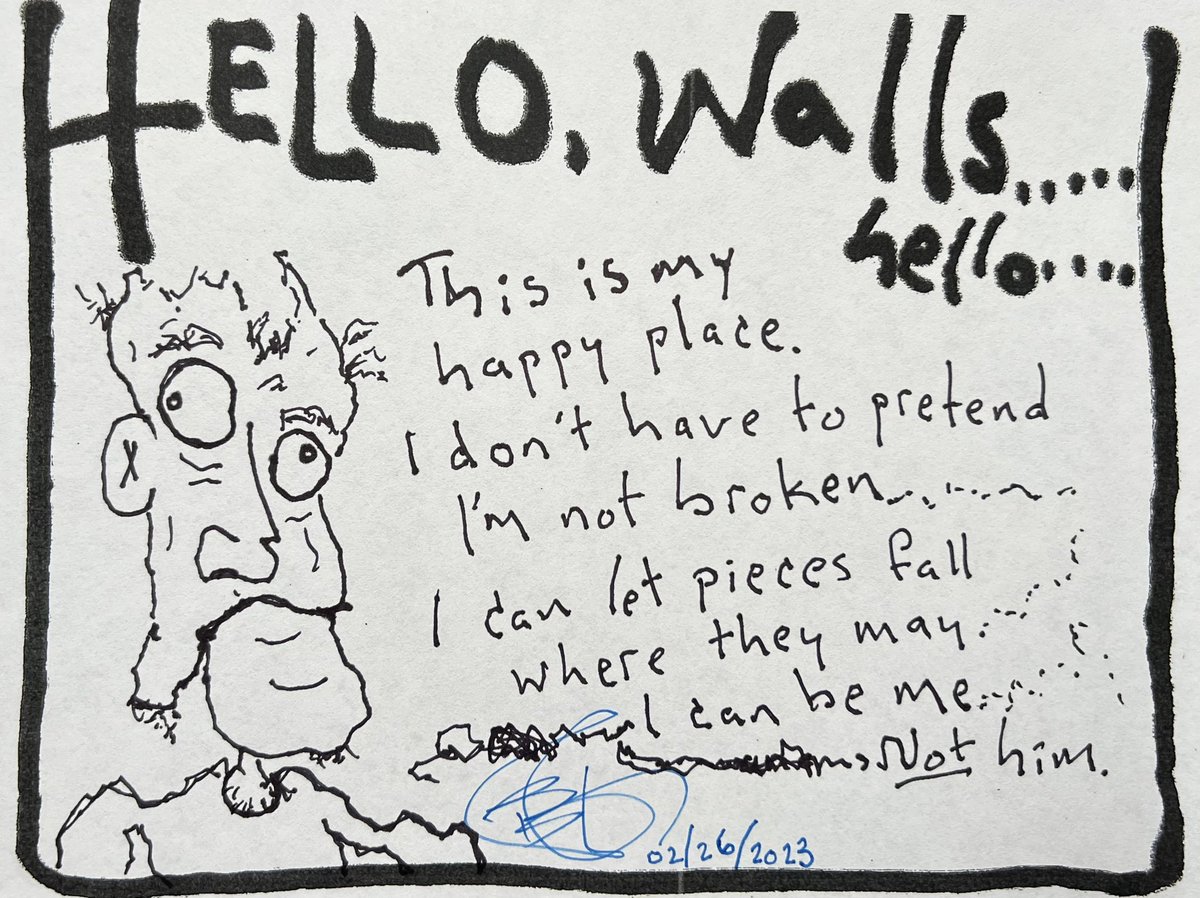 HELLO, Walls.....
hello.....
This is my
happy place.
I don't have to pretend
I'm not broken........
I can let pieces fall
where they may.
I can be me...
Not him.
02/26/2023